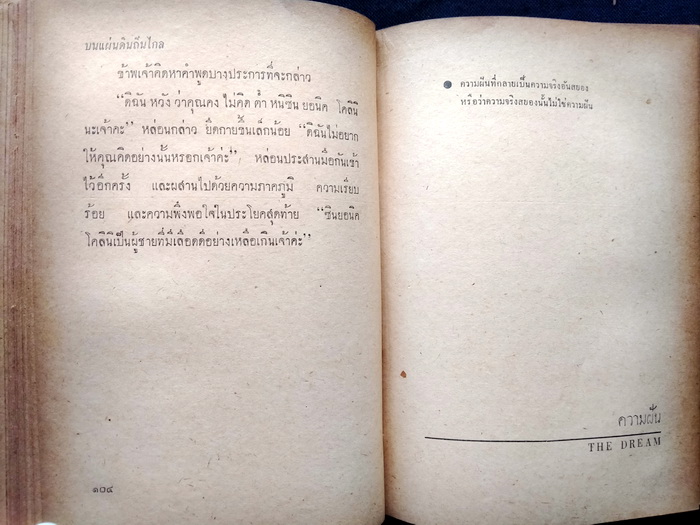 บนแผ่นดินถิ่นไกล
ข้าพเจ้าคิดหาคำพูดบางประการที่จะกล่าว
“ดิฉัน หวัง ว่าคุณคง ไม่คิด ตำ หนิซิน ยอนิค โคลินี
นะเจ้าคะ” หล่อนกล่าว ยืดกายขึ้นเล็กน้อย “ดิฉันไม่อยาก
ให้คุณคิดอย่างนั้นหรอกเจ้าค่ะ” หล่อนประสานมือกันเข้า
ไว้อีกครั้ง และผสานไปด้วยความภาคภูมิ ความเรียบ
ร้อย และความพึงพอใจในประโยคสุดท้าย “ซินยอนิค
โคลินีเป็นผู้ชายที่มีเลือดดีอย่างเหลือเกินเจ้าค่ะ”
๑๐๔
ความฝันที่กลายเป็นความจริงอันสยอง
หรือว่าความจริงสยองนั้นไม่ใช่ความฝัน
ความฝัน
THE DREAM